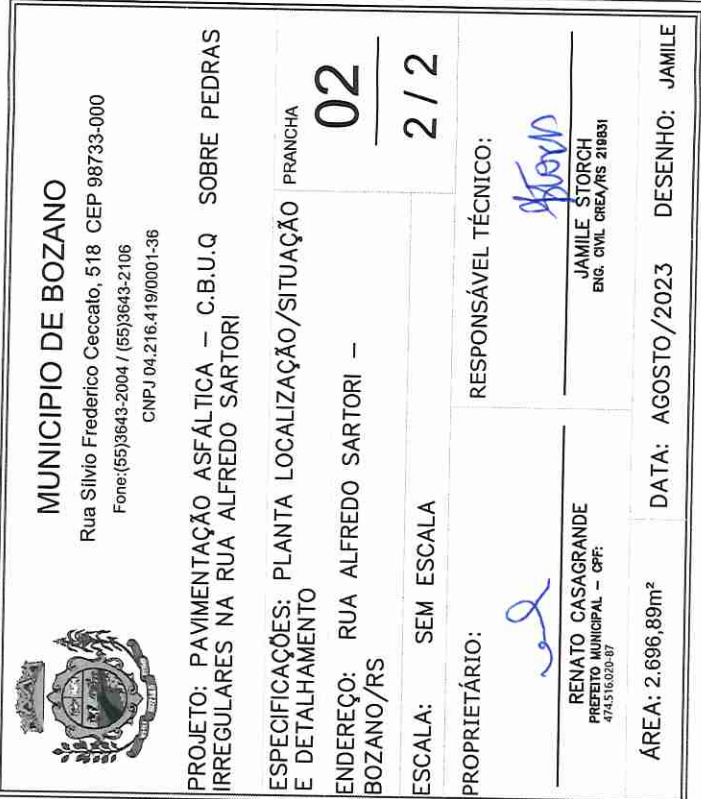 MUNICIPIO DE BOZANO
Rua Silvio Frederico Ceccato, 518 CEP 98733-000
Fone:(55)3643-2004 / (55)3643-2106
CNPJ 04.216.419/0001-36
PROJETO: PAVIMENTAÇÃO ASFÁLTICA – C.B.U.Q SOBRE PEDRAS
IRREGULARES NA RUA ALFREDO SARTORI
ESPECIFICAÇÕES: PLANTA LOCALIZAÇÃO/SITUAÇÃO
E DETALHAMENTO
PRANCHA
02
2 / 2
ENDEREÇO: RUA ALFREDO SARTORI –
BOZANO/RS
ESCALA: SEM ESCALA
PROPRIETÁRIO:
RENATO CASAGRANDE
PREFEITO MUNICIPAL – CPF:
474.516.020-87
RESPONSÁVEL TÉCNICO:
JAMILE STORCH
ENG. CIVIL CREA/RS 219831
ÁREA: 2.696,89m²
DATA: AGOSTO/2023
DESENHO: JAMILE